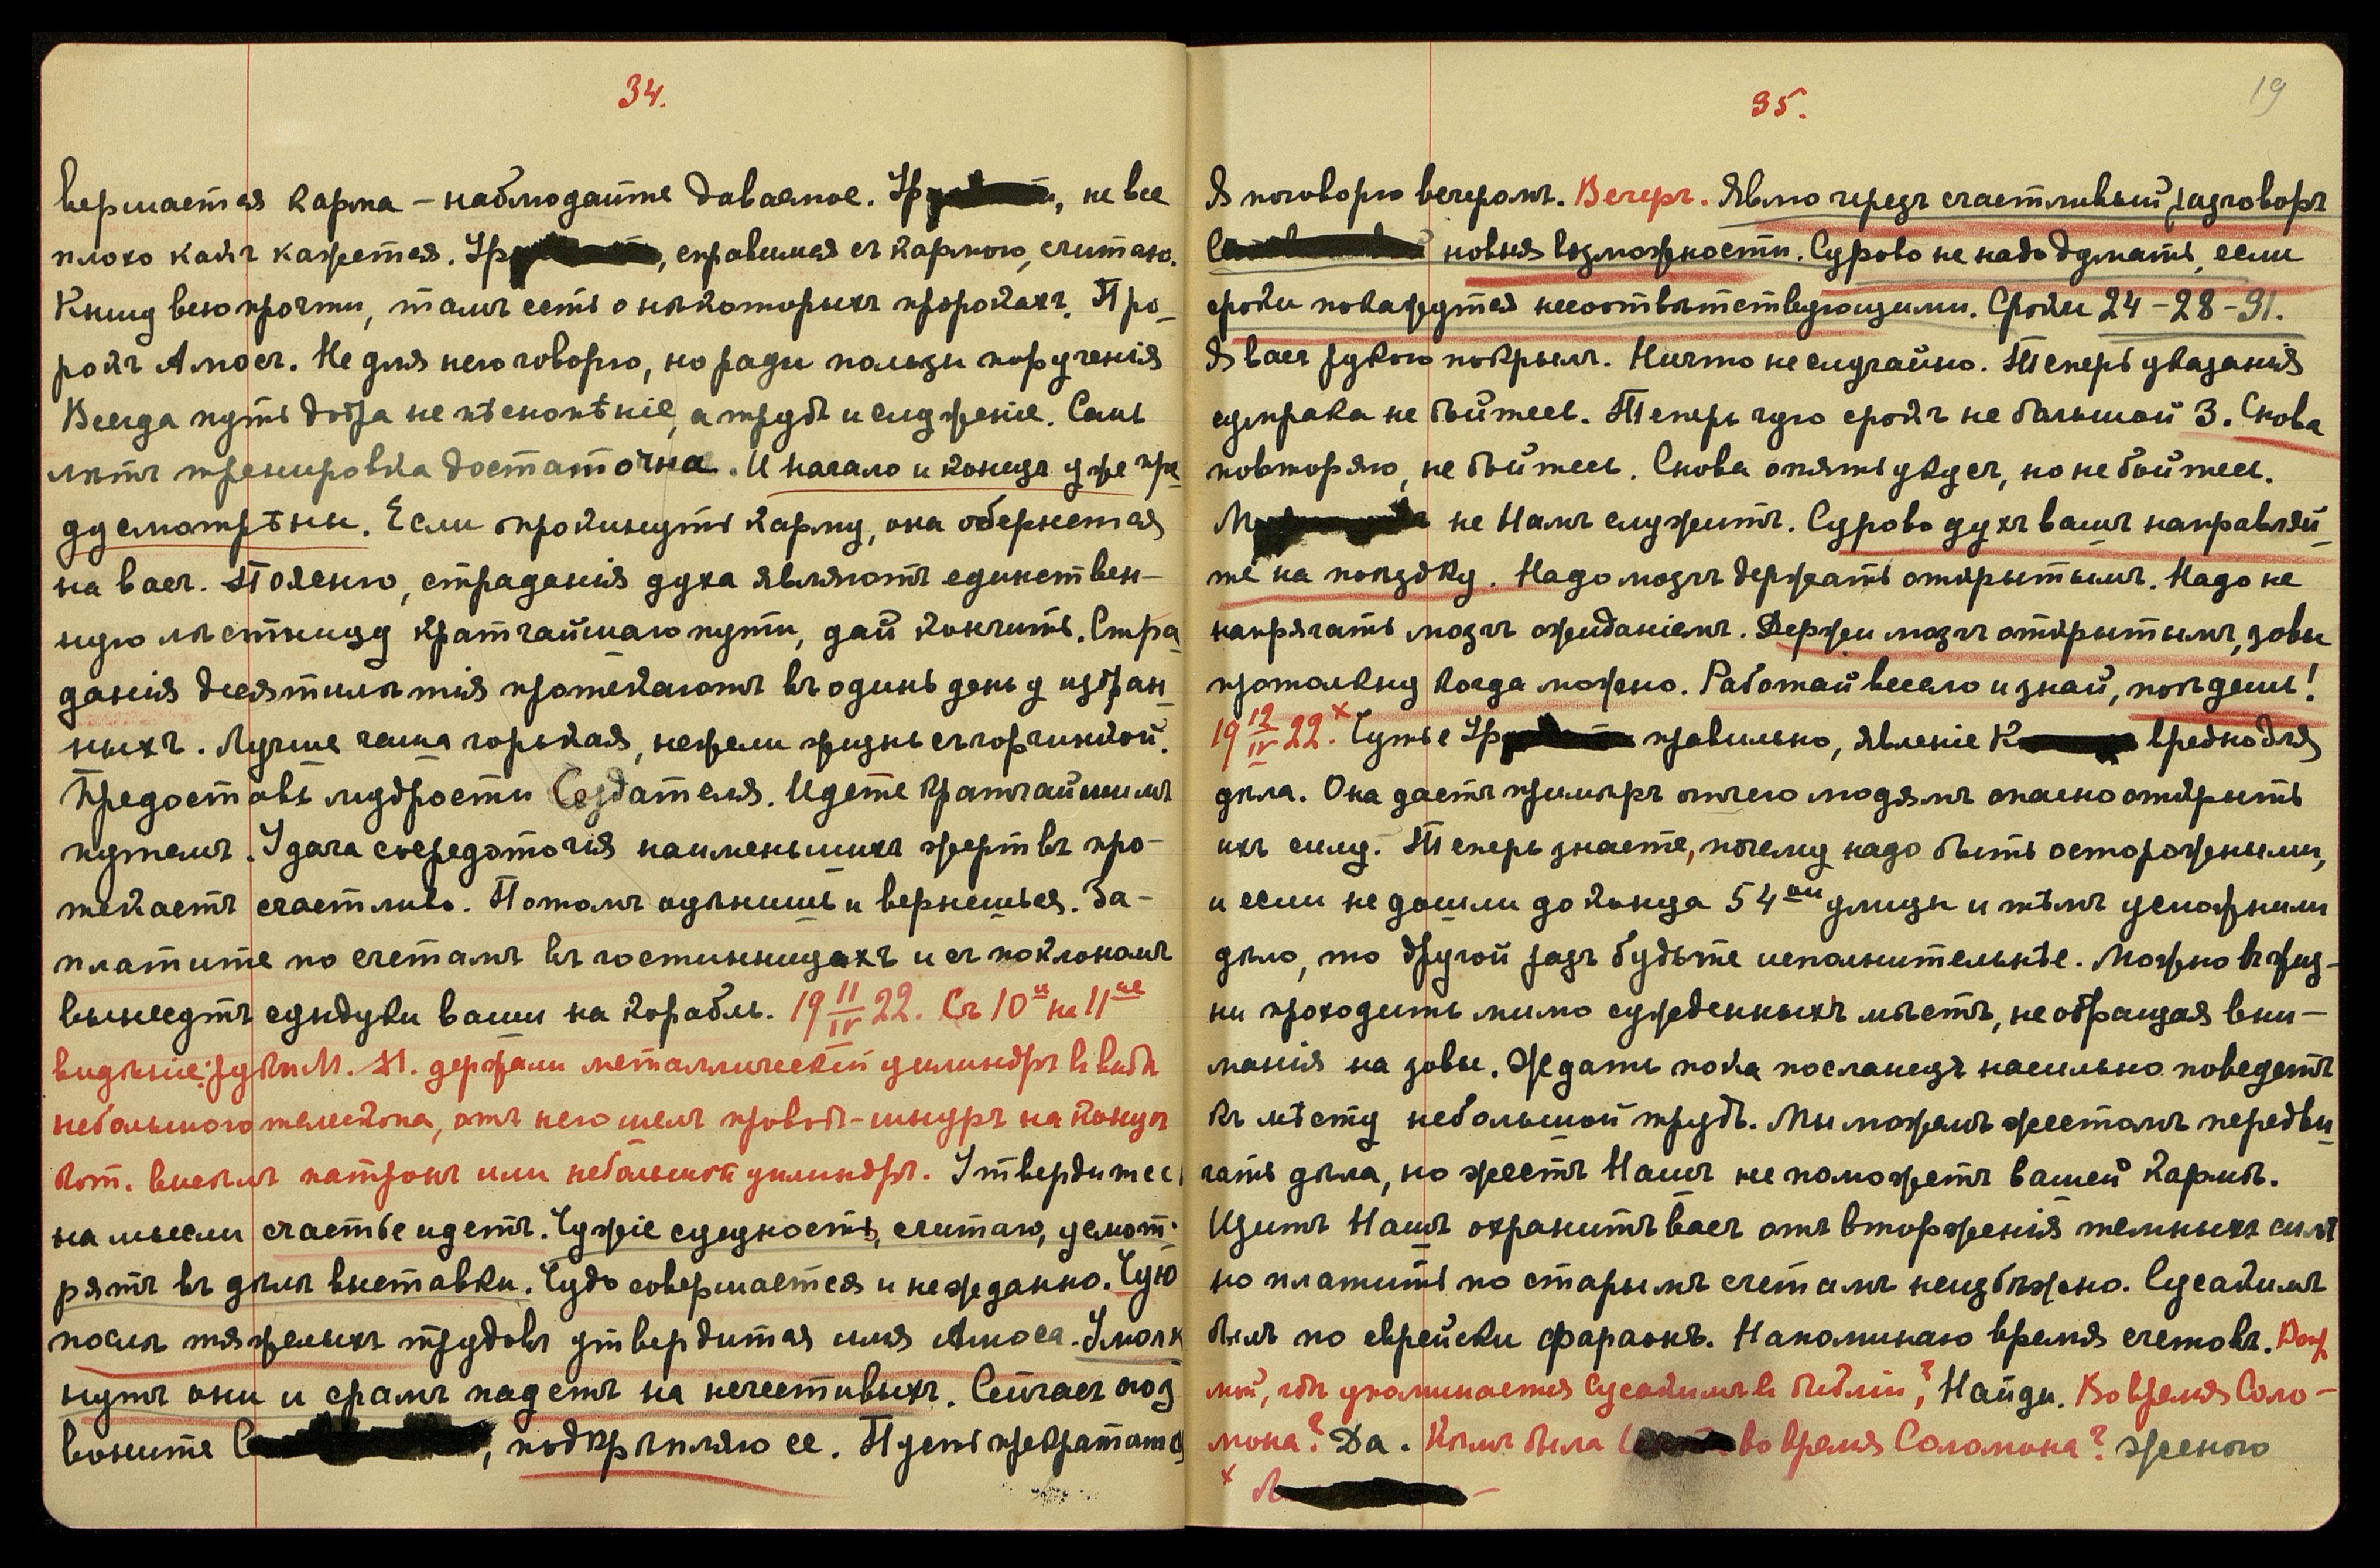 34.
вершается карма – наблюдайте даваемое. Ур, не все
плохо какъ кажется. Ур, справимся съ кармою, считаю.
Книгу всю прочти, тамъ есть о некоторыхъ пророкахъ. Про-
рокъ Амосъ. Не для него говорю, но ради пользы порученія
Всегда путь добра не пѣснопѣніе, а трудъ и служеніе. Семь
лѣтъ тренировка достаточна. И начало и конецъ уже пре-
дусмотрѣны. Если опрокинуть карму, она обернется
на васъ. Поясню, страданія духа являютъ единствен-
ную лѣстницу кратчайшаго пути, дай кончить. Стра-
данія десятилѣтія протекаютъ въ одинъ день у избран-
ныхъ. Лучше чаша горькая, нежели жизнь съ горчинкой.
Предоставь мудрости Создателя. Идете кратчайшимъ
путемъ. Удача сосредоточія наименьшихъ жертвъ про-
текаетъ счастливо. Потомъ оцѣнишь и вернешься. За-
платите по счетамъ въ гостинницахъ и съ поклономъ
вынесутъ сундуки ваши на корабль. 19 11/IV 22. Съ 10и на 11ое
видѣніе: руки М. М. держали металлическій цилиндръ въ видѣ
небольшого телескопа, отъ него шелъ проводъ-шнуръ на концѣ
кот. висѣлъ патронъ или небольшой цилиндръ. Утвердитесь
на мысли счастье идетъ. Чужіе сущность, считаю, усмот-
рятъ въ дѣлѣ выставки. Чудо совершается и нежданно. Чую
послѣ тяжелыхъ трудовъ утвердится имя Амоса. Умолк-
нутъ они и срамъ падетъ на нечестивыхъ. Сейчасъ поз-
воните С, подкрѣпляю ее. Пусть прекратятъ
35.
19
Я поговорю вечеромъ. Вечеръ. Явлю черезъ счастливый разговоръ
С новыя возможности. Сурово не надо думать, если
сроки покажутся несоотвѣтствующими. Сроки 24 – 28 – 31.
Я васъ рукою покрылъ. Ничто не случайно. Теперь указанія
сумрака не бойтесь. Теперь чую срокъ не большой 3. Снова
повторяю, не бойтесь. Снова опять укусъ, но не бойтесь.
М не Намъ служитъ. Сурово духъ вашъ направляй-
те на поѣздку. Надо мозгъ держать открытымъ. Надо не
напрягать мозгъ ожиданіемъ. Держи мозгъ открытымъ, зовы
протолкну когда можно. Работай весело и знай, поѣдешь!
19 12/IV 22.х Чутье Ур правильно, явленіе К вредно для
дѣла. Она даетъ примѣръ отчего людямъ опасно открыть
ихъ силу. Теперь знаете, почему надо быть осторожными,
и если не дошли до конца 54ой улицы и тѣмъ усложнили
дѣло, то другой разъ будьте исполнительнѣе. Можно въ жиз-
ни проходить мимо сужденныхъ мѣстъ, не обращая вни-
манія на зовы. Ждать пока посланецъ насильно поведетъ
къ мѣсту небольшой трудъ. Мы можемъ жестомъ передви-
гать дѣла, но жестъ Нашъ не поможетъ вашей кармѣ.
Щитъ Нашъ охранитъ васъ отъ вторженія темныхъ силъ
но платить по старымъ счетамъ неизбѣжно. Сусакимъ
былъ по еврейски фараонъ. Напоминаю время счетовъ.
мой, гдѣ упоминается Сусакимъ въ библіи? Найди. Во время Соло-
мона? Да. Кѣмъ была во время Соломона? женою
х